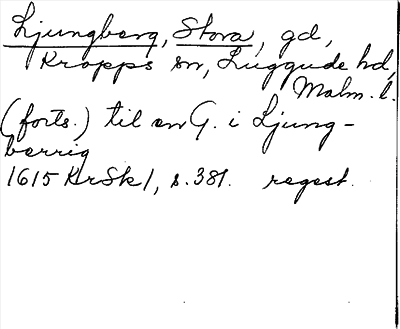 Ljungberg, Stora, gd,
Kropps sn, Luggude hd,
Malm. l.
(forts.) til en G. i Ljung-
berrig
1615 KrSk 1, s. 381. regest.